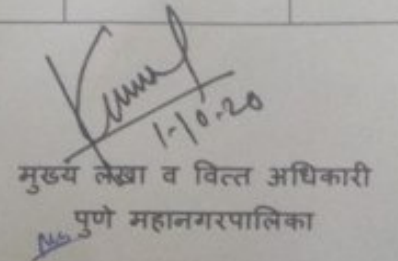 1-10-20
मुख्य लेखा व वित्त अधिकारी
पुणे महानगरपालिका